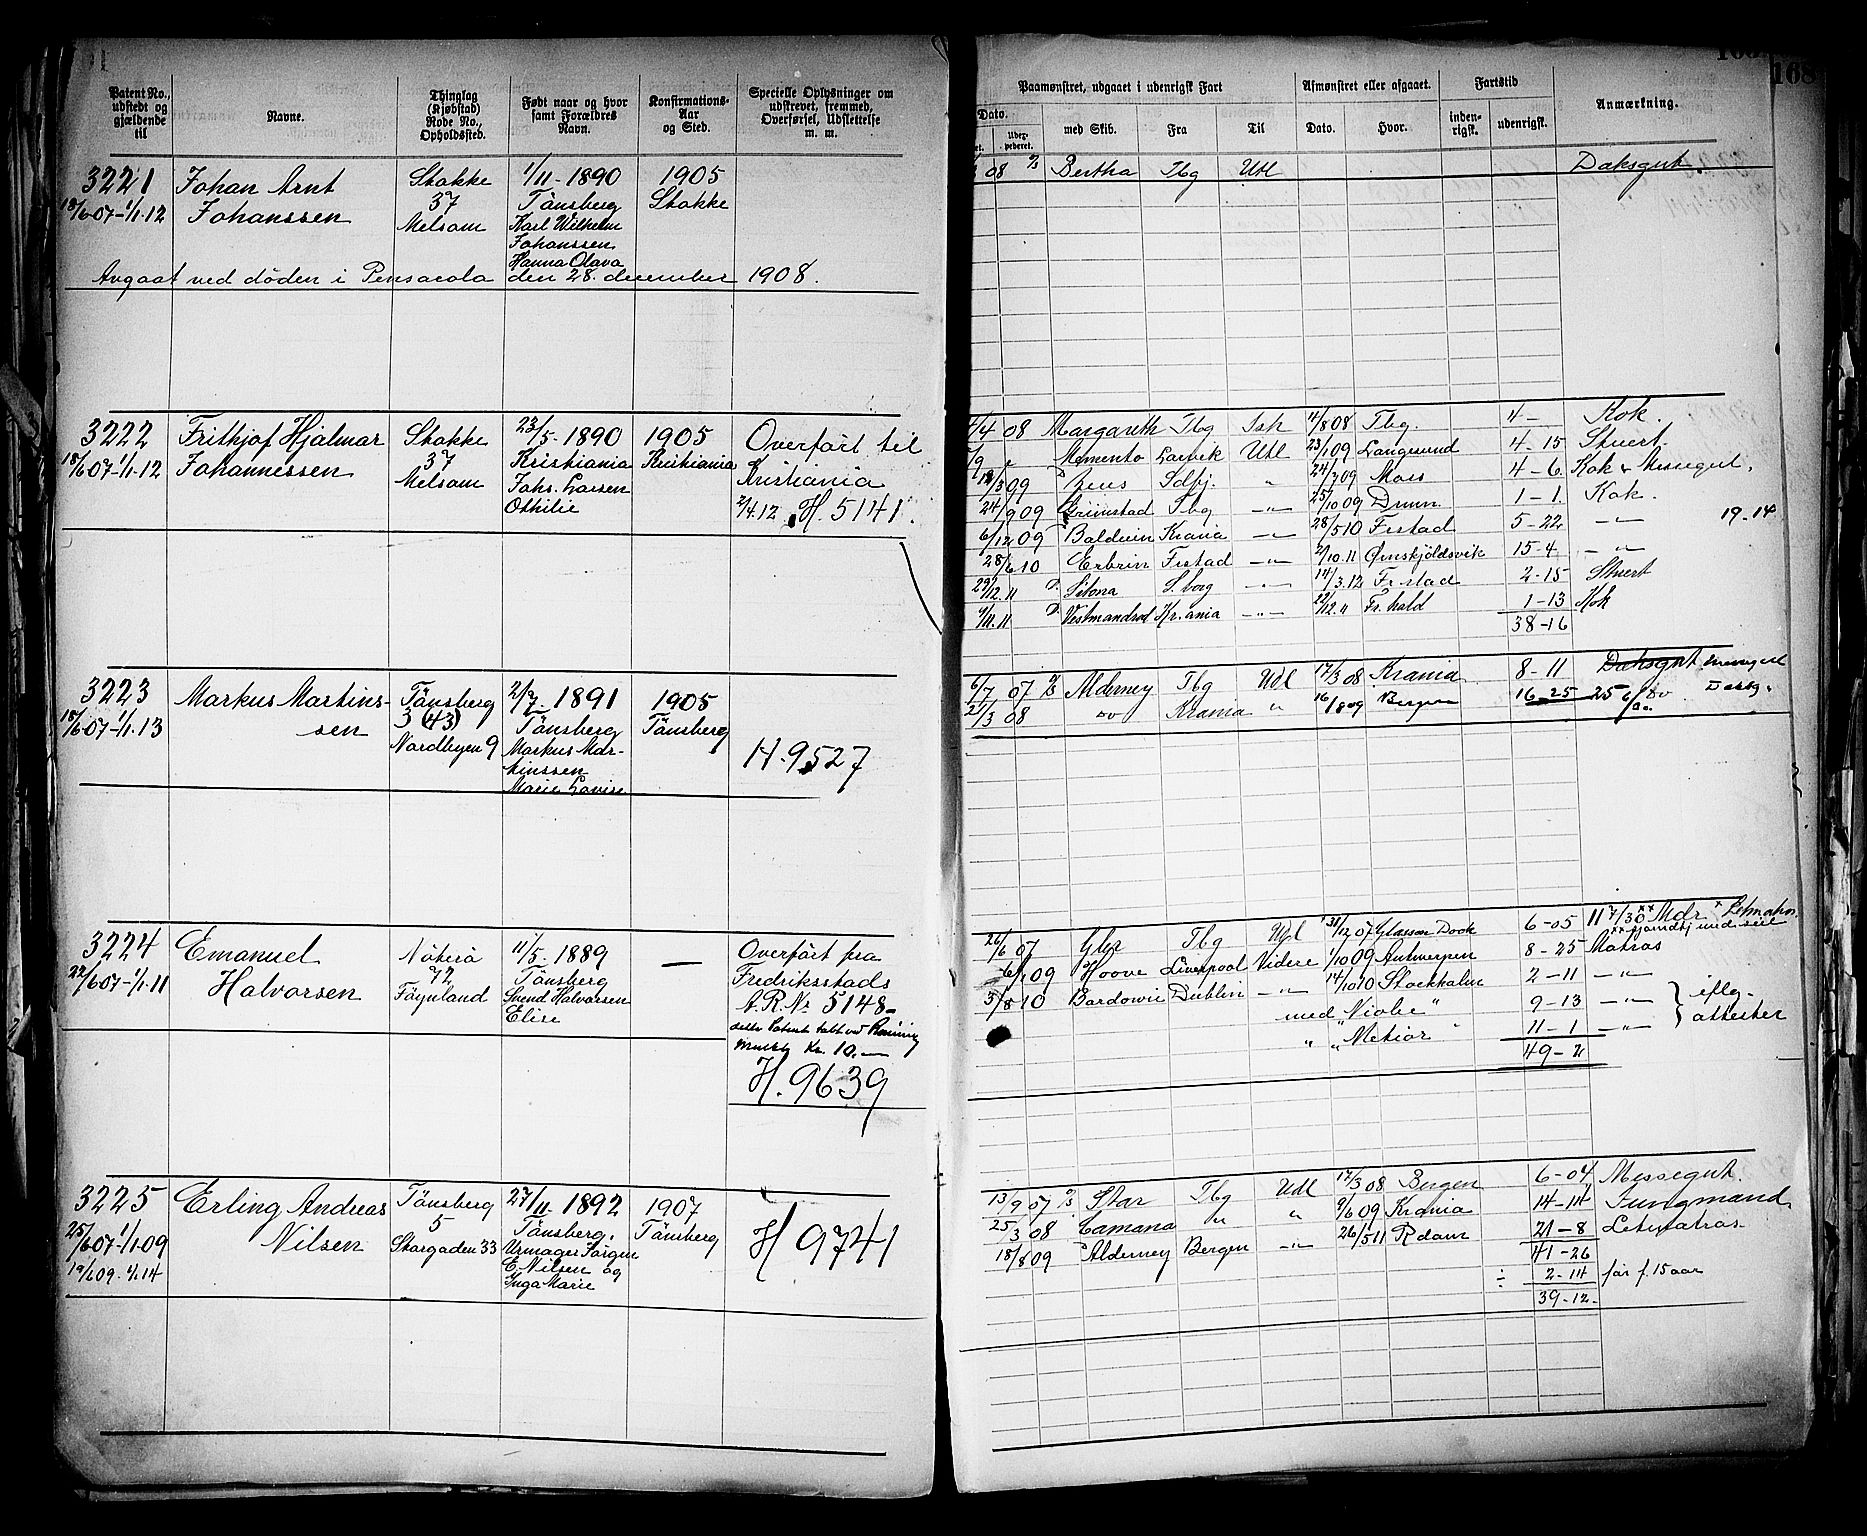 168
Patent No., udstedt og gjældende til
Navne.
Thinglag (Kjøbstad) Rode No., Opholdssted.
Født naar og hvor samt Forældres Navn.
Konfirmations-Aar og Sted.
Specielle Oplysninger om udskrevet, fremmed, Overførsel, Udslettelse m. m.
Paamønstret, udgaaet i udenrigsk Fart
Afmønstret eller afgaaet.
Fartstid
Anmærkning.
Dato.
med Skib.
Fra
Til
Dato.
Hvor.
inden-rigsk.
udenrigsk.
3221 Johan Arnt Stokke 1/11-1890 1905
18/6 07-1/1.12 Johanssen 37 Tönsberg Stokke
Melsom Karl Wilhelm
Johanssen
Hanna Olava
Avgaat ved döden i Pensacola den 28. december 1908.
08 Bertha Tbg Utl Daksgut.
3222 Frithjof Hjalmar Stokke 23/5-1890 1905 Overført til
18/6 07-1/1.12 Johannessen 37 Kristiania Kristiania Kristiania
Melsom Johs. Larsen 2/4.12 H. 5141.
Othilie
4/4 08 Margareth Tbg Ish 4/8 08 Tbg. 4- Kok.
Memento Larvik Utl 23/1 09 Langesund 4-15 Stuert.
/3 09 Zeus Sdfj. " 24/7 09 Moss 4-6. Kok & Messegut.
24/9 09 Grimstad Tbg -"- 25/10 09 Drmn 1-1. Kok.
6/12 09 Baldwin Krania -"- 28/5 10 Frstad 5-22 -"- 19-14
28/6 10 Erbrin Frstad -"- 2/10.11 Ørnskjöldsvik 15-4. -"-
29/12.11 Sitona S.borg -"- 14/3.12 Fr.stad 2-15 Stuert
9/11.11 Vestmandrod Kr.ania -"- 22/12.11 Fr.hald 1-13 Kok
38-16
3223 Markus Martins- Tönsberg 2/7-1891 1905
18/6 07-1/1.13 sen 3 (43) Tönsberg Tönsberg
Nordbyen 9 Markus Mar-
tinssen
Marie Lovise
H. 9527
6/7 07 Alderney Tbg Udl 17/3 08 Krania 8-11 Daksgut Messegut
21/3 08 Do Krania " 16/8 09 Bergen 16-25 25 6/ Do
3224 Emanuel Nöterö 11/5-1889 — Overført fra
22/6 07-1/1.11 Halvorsen 72 Tönsberg Fredriksstads
Föynland Svend Halvorsen A.R.Nr 5148-
Elise
Kr. 10,-
H. 9639
26/6 07 Glyr Tbg Udl 31/12 07 Glasson Dock 6-05 11 7/30 Mdr. Letmatr.
6/1 09 Hoove Liverpool Videre 1/10 09 Antwerpen 8-25 Matros
3/8 10 Bardowie Dublin -"- 14/10 10 Stockholm 2-11 -"-
med Niobe " 9-13 -"- } iflg.
" " Meteor " 11-1 -"- attester
49-2
3225 Erling Andreas Tönsberg 27/11-1892 1907
25/6 07-1/1.09 Nilsen 5 Tönsberg. Tönsberg
19/6 09.1/1.14 Storgaden 33 Urmager Jörgen
E. Nilsen og
Inga Marie
H 9741
13/9 07 Star Tbg Udl 17/3 08 Bergen 6-04 Messegut.
25/3 08 Camana " " 9/6 09 Krania 14-14 Jungmand
18/8 09 Alderney Bergen -"- 26/5 11 Rdam 21-8 Letmatros.
41-26
÷ 2-14 för f. 15 aar
39-12.